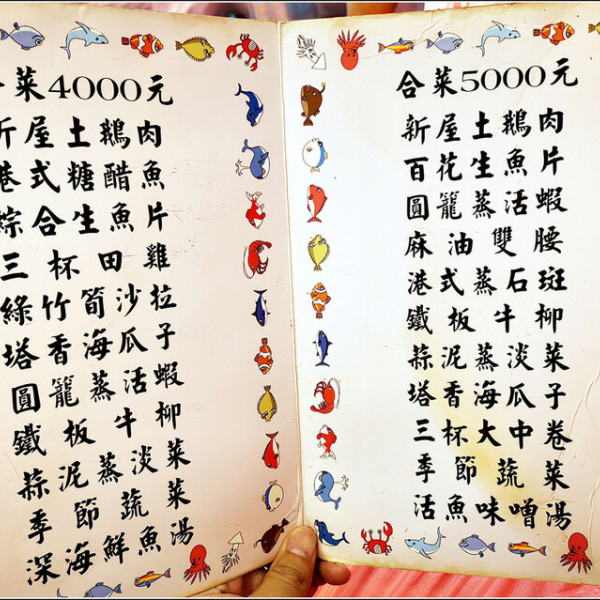 菜4000元
新屋土鵝肉
港式糖醋魚
綜合生魚片
三杯田雞
綠竹筍沙拉
塔香海瓜子
圓籠蒸活蝦
鐵板牛柳
蒜泥蒸淡菜
季節蔬菜
深海鮮魚湯
合菜5000元
新屋土鵝肉
百花生魚片
圓籠蒸活蝦
麻油雙腰
港式蒸石斑
鐵板牛柳
蒜泥蒸淡菜
塔香海瓜子
三杯大中卷
季節蔬菜
活魚味噌湯